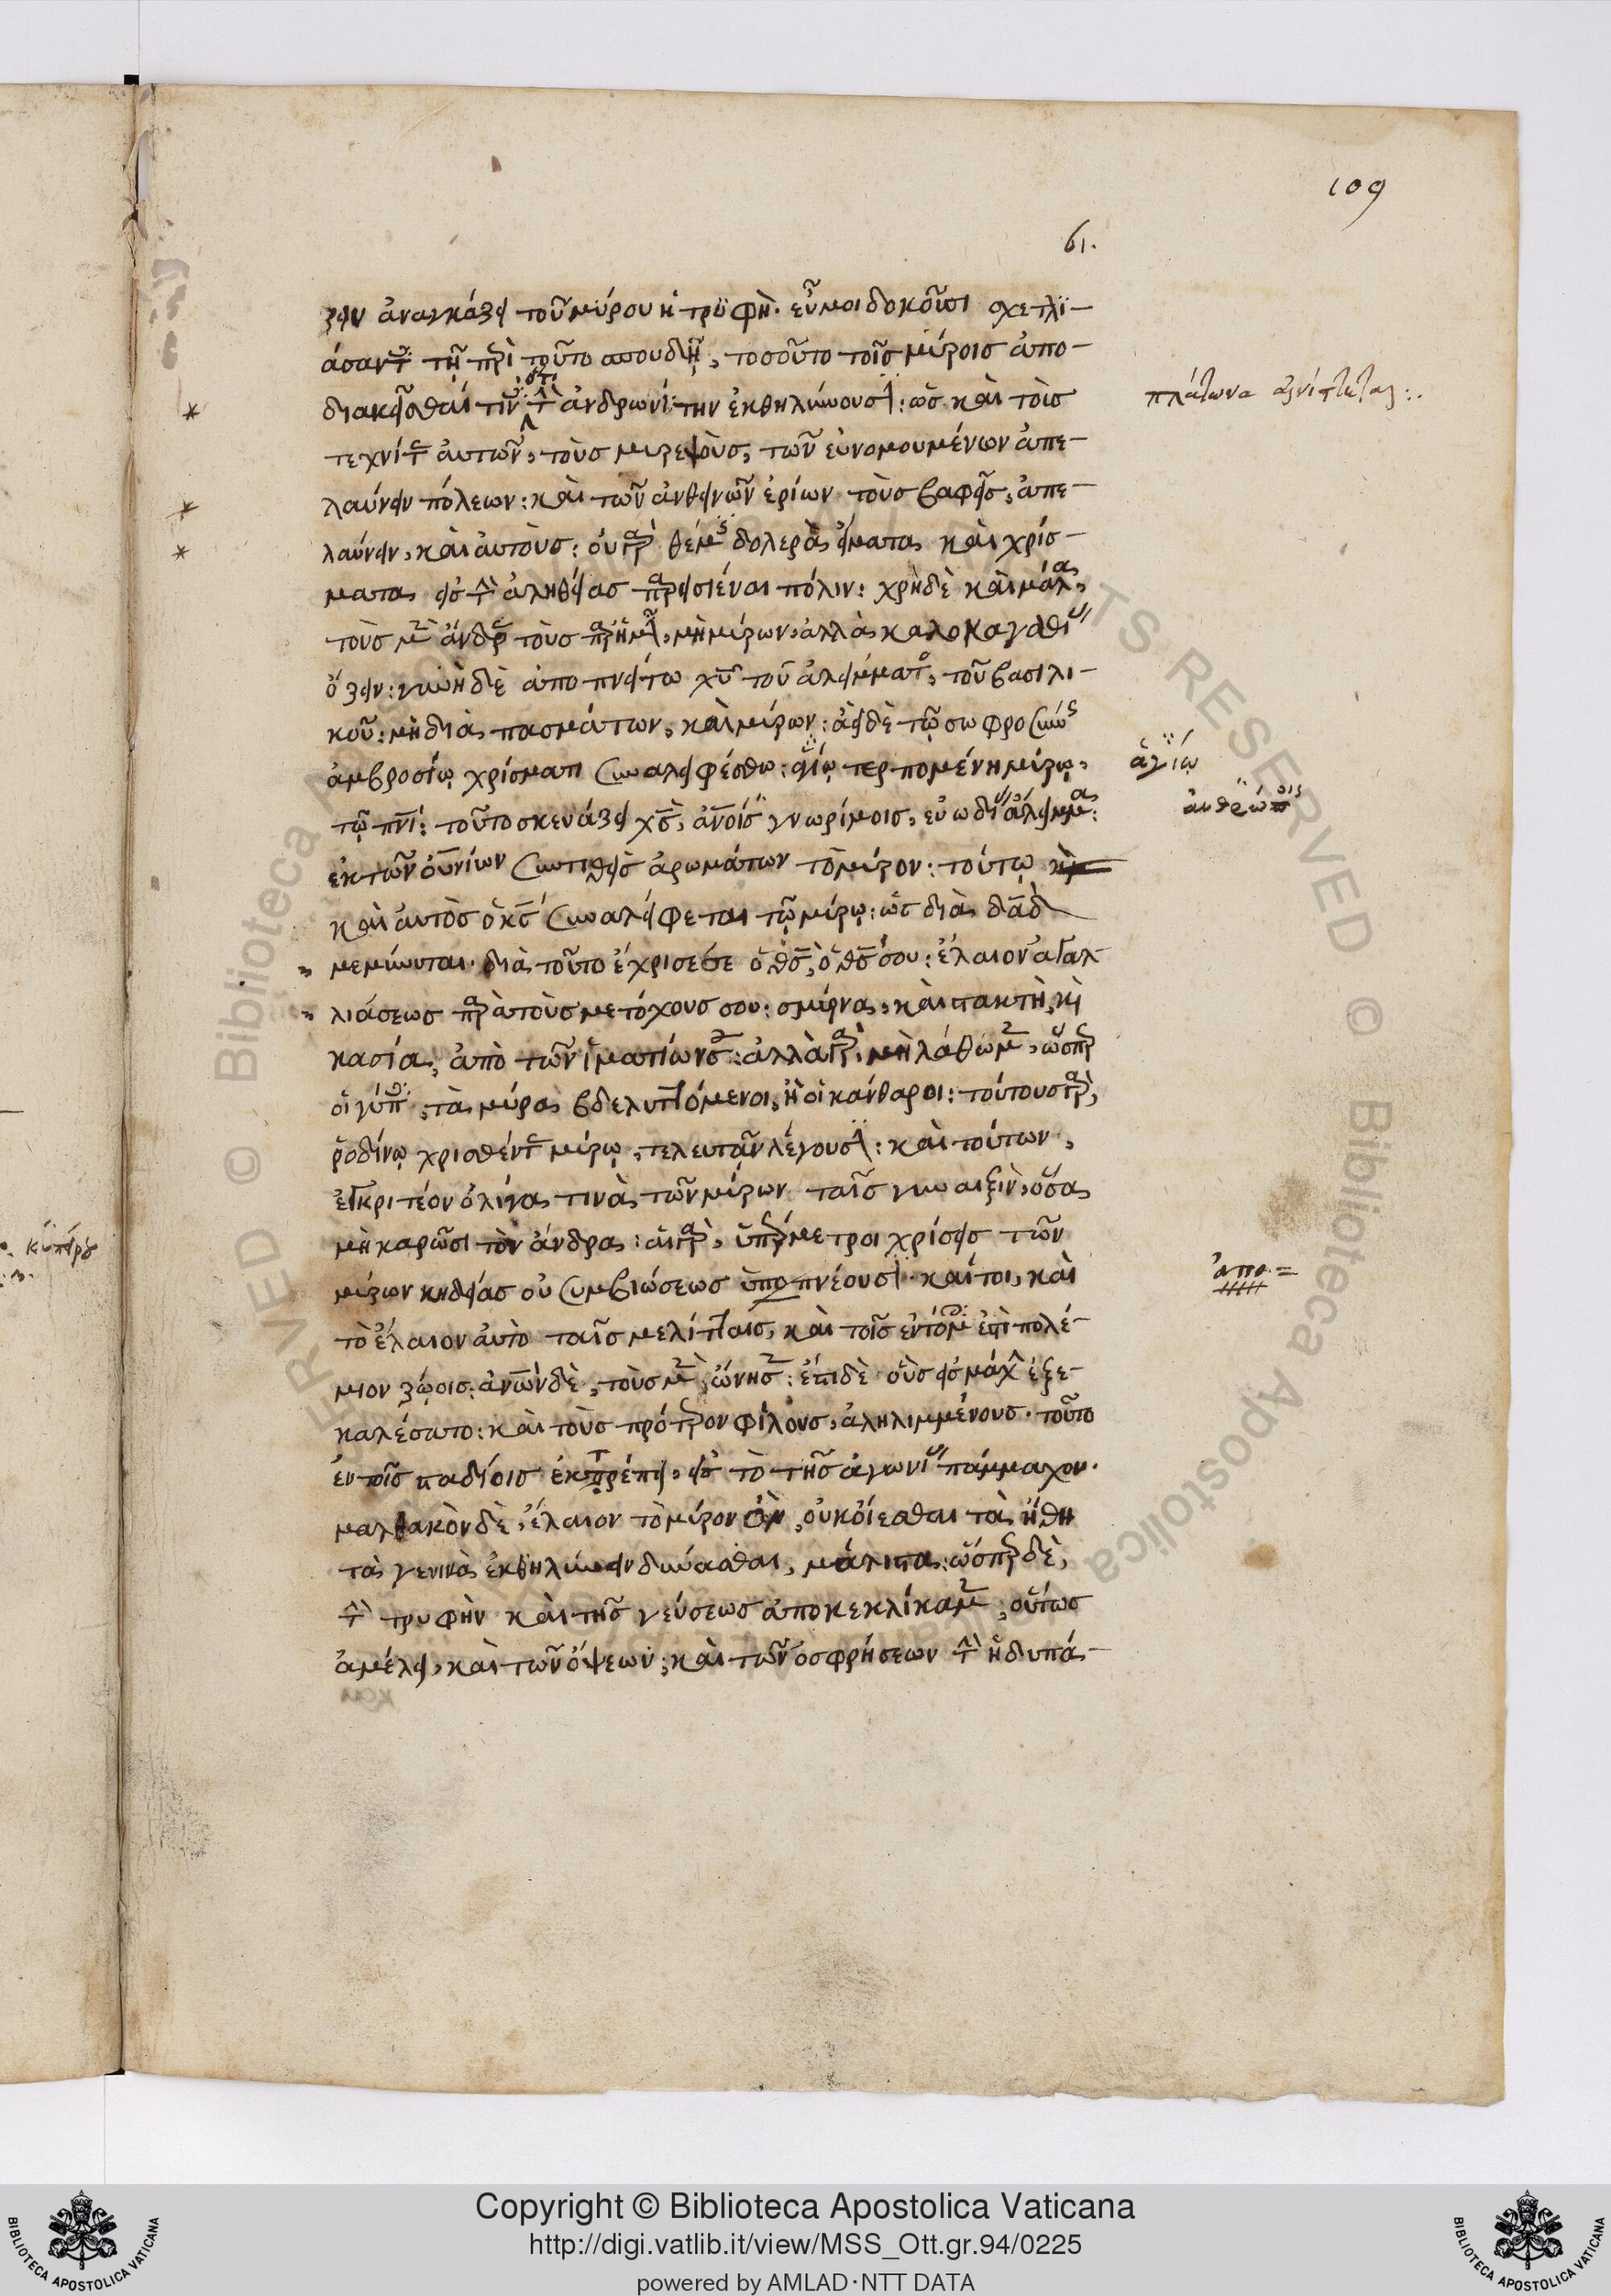 109
61.
ζειν ἀναγκάζει τοῦ μύρου ἡ τρυφή. εὖ μοι δοκοῦσι σχετλι-
άσαντες τῇ περὶ τοῦτο σπουδῇ, τοσοῦτο τοῖς μύροις ἀπο-
διακεῖσθαι τὴν ἀνδρωνίτην ἐκθηλύνουσι: ὡς καὶ τοὺς
τεχνίτας αὐτῶν, τοὺς μυρεψοὺς, τῶν εὐνομουμένων ἀπε-
λαύνειν πόλεων: καὶ τῶν ἀνθεινῶν ἐρίων τοὺς βαφεῖς, ἀπε-
λαύνειν, καὶ αὐτούς: οὐ γὰρ θέμις δολερὰ εἵματα καὶ χρίσ-
ματα εἰς τὴν ἀληθείας παρεισιέναι πόλιν: χρὴ δὲ καὶ μάλα,
τοὺς μὲν ἄνδρας τοὺς παρ' ἡμῖν, μὴ μύρων, ἀλλὰ καλοκαγαθίας
ὄζειν: γυνὴ δὲ ἀποπνείτω χυ τοῦ ἀλείμματος, τοῦ βασιλι-
κοῦ: μὴ διαπασμάτων, καὶ μύρων: ἀεὶ δὲ τῷ σωφροσύνης
ἀμβροσίῳ χρίσματι συναλειφέσθω: ἁγίῳ τερπομένη μύρῳ,
τῷ πνι: τοῦτο σκευάζει χς, ἀνοις γνωρίμοις, εὐωδίας ἄλειμμα:
ἐκ τῶν οὐνίων συντιθεὶς ἀρωμάτων τὸ μύρον: τούτῳ
καὶ αὐτὸς ὁ κς συναλείφεται τῷ μύρῳ: ὡς διὰ δαδ
μεμήνυται. διὰ τοῦτο ἔχρισέ σε ὁ θς, ὁ θς σου: ἔλαιον ἀγαλ-
λιάσεως παρὰ τοὺς μετόχους σου: σμύρνα, καὶ στακτὴ, καὶ
κασία, ἀπὸ τῶν ἱματίων σου: ἀλλὰ γὰρ, μὴ λάθωμεν, ὥσπερ
οἱ γῦπες, τὰ μύρα βδελυττόμενοι, ἢ οἱ κάνθαροι: τούτους γὰρ,
ῥοδίνῳ χρισθέντας μύρῳ, τελευτᾶν λέγουσι: καὶ τούτων,
ἐγκριτέον ὀλίγα τινὰ τῶν μύρων ταῖς γυναιξὶν, ὅσα
μὴ καρώσῃ τὸν ἄνδρα: αἱ γὰρ, ὑπέρμετροι χρίσεις τῶν
μύρων κηδείας οὐ συμβιώσεως ὑποπνέουσι. καίτοι, καὶ
τὸ ἔλαιον αὐτὸ ταῖς μελίτταις, καὶ τοῖς ἐντόμοις ἐστὶ πολέ-
μιον ζῴοις: ἀνων δὲ, τοὺς μὲν, ὤνησεν: ἔστι δὲ οὓς εἰς μάχην ἐξε-
καλέσατο: καὶ τοὺς πρότερον φίλους, ἀληλιμμένους. τοῦτο
ἐν τοῖς σταδίοις ἐκτρέπει, εἰς τὸ τῆς ἀγωνίας πάμμαχον.
μαλθακὸν δὲ, ἔλαιον τὸ μύρον ὂν, οὐκ οἴεσθαι τὰ ἤθη
τὰ γεννικὰ ἐκθηλύνειν δύνασθαι, μάλιστα: ὥσπερ δὲ,
τὴν τρυφὴν καὶ τῆς γεύσεως ἀποκεκλίκαμεν, οὕτως
ἀμέλει, καὶ τῶν ὄψεων, καὶ τῶν ὀσφρήσεων τὴν ἡδυπά-
πλάτωνα αἰνίττεται:.
ἁγίῳ
ἀνθρώποις
ἀπο=
κύπερου
Copyright © Biblioteca Apostolica Vaticana
http://digi.vatlib.it/view/MSS_Ott.gr.94/0225
powered by AMLAD·NTT DATA
BIBLIOTECA APOSTOLICA VATICANA
BIBLIOTECA APOSTOLICA VATICANA